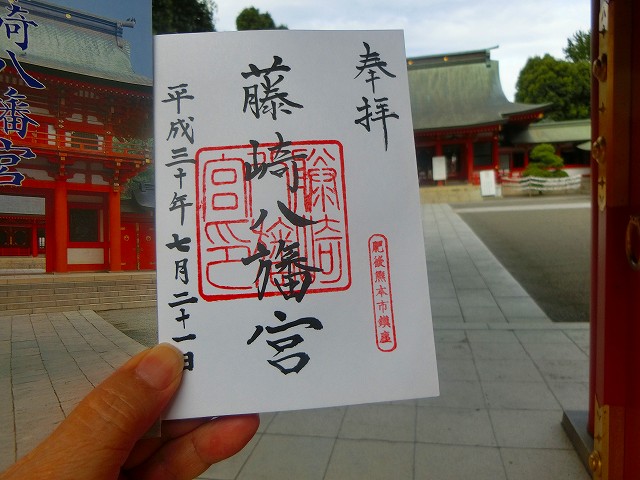 奉拝
藤崎八旛宮
平成三十年七月二十一日
藤崎
宮印
肥後熊本市鎮座
崎八旛宮